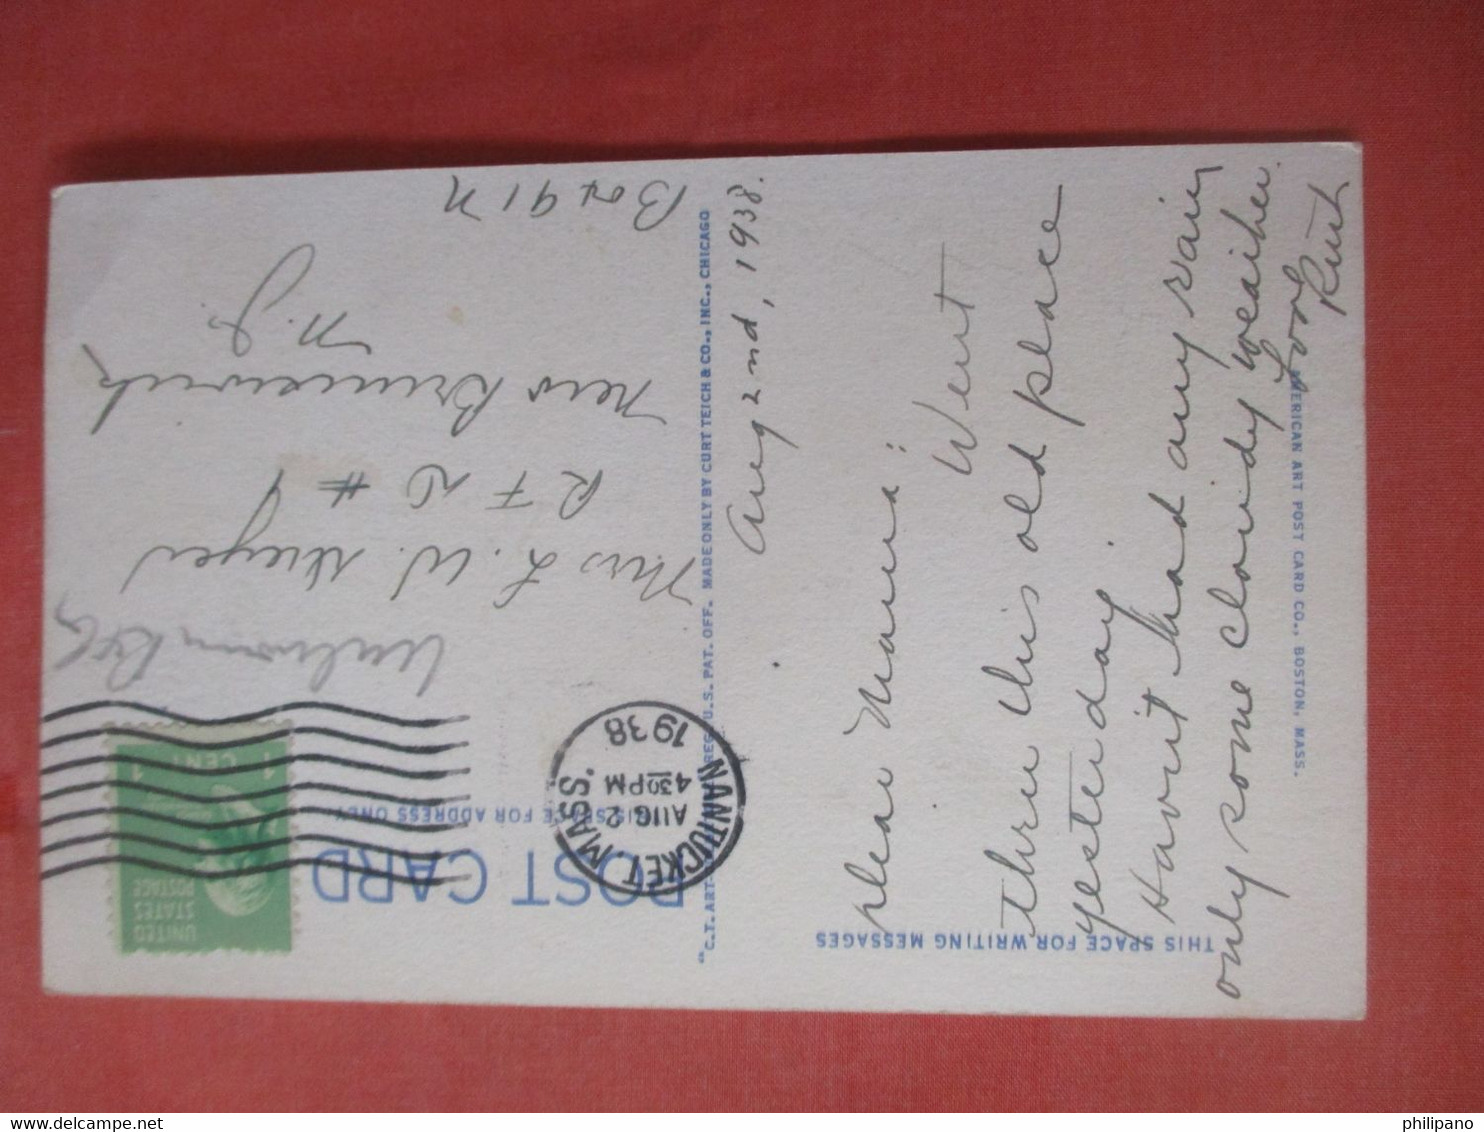 THIS SPACE FOR WRITING MESSAGES
Aug 2nd, 1938.
Dear Mama:
Went
thru this old place
yesterday.
Havn't had any rain
only some cloudy weather.
Love
Ruth
AMERICAN ART POST CARD CO., BOSTON, MASS.
"C.T. ART- REG. U.S. PAT. OFF. MADE ONLY BY CURT TEICH & CO., INC., CHICAGO
POST CARD
THIS SPACE FOR ADDRESS ONLY
NANTUCKET MASS.
AUG 2
4 30 PM
1938
UNITED
STATES
POSTAGE
1 CENT 1
Mrs L. W.
R F D # 4
New Brunswick
N. J.
Box 91 N
philipano